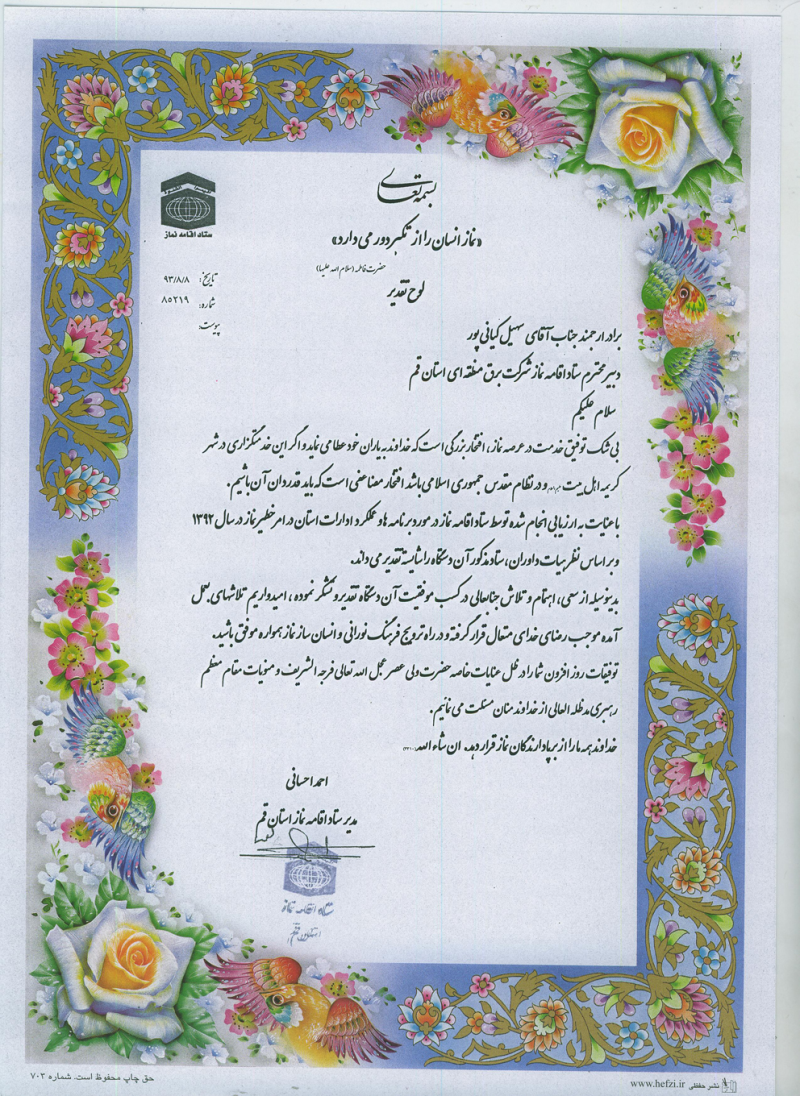 بسمه تعالی
ستاد اقامه نماز
«نماز انسان را از تکبر دور می دارد»
حضرت فاطمه (سلام الله علیها)
تاریخ: ۹۳/۸/۸
لوح تقدیر
شماره: ۸۵۲۱۹
پیوست:
برادر ارجمند جناب آقای سهیل کیانی پور
دبیر محترم ستاد اقامه نماز شرکت برق منطقه ای استان قم
سلام علیکم
بی شک توفیق خدمت در عرصه نماز، افتخار بزرگی است که خداوند به یاران خود عطا می نماید و اگر این خدمتگزاری در شهر
کریمه اهل بیت و در نظام مقدس جمهوری اسلامی باشد افتخار مضاعفی است که باید قدردان آن باشیم.
با عنایت به ارزیابی انجام شده توسط ستاد اقامه نماز در مورد برنامه ها و عملکرد ادارات استان در امر خطیر نماز در سال ۱۳۹۲
و بر اساس نظر هیات داوران، ستاد مذکور آن دستگاه را شایسته تقدیر می داند.
بدینوسیله از سعی، اهتمام و تلاش جنابعالی در کسب موفقیت آن دستگاه تقدیر و تشکر نموده، امیدواریم تلاشهای بعمل
آمده موجب رضای خدای متعال قرار گرفته و در راه ترویج فرهنگ نورانی و انسان ساز نماز همواره موفق باشید.
توفیقات روز افزون شما را در ظل عنایات خاصه حضرت ولی عصر عجل الله تعالی فرجه الشریف و منویات مقام معظم
رهبری مدظله العالی از خداوند منان مسئلت می نمائیم.
خداوند همه ما را از برپادارندگان نماز قرار دهد. ان شاء الله
احمد احسانی
مدیر ستاد اقامه نماز استان قم
ستاد اقامه نماز
استان قم
حق چاپ محفوظ است. شماره ۷۰۳
نشر حفظی www.hefzi.ir